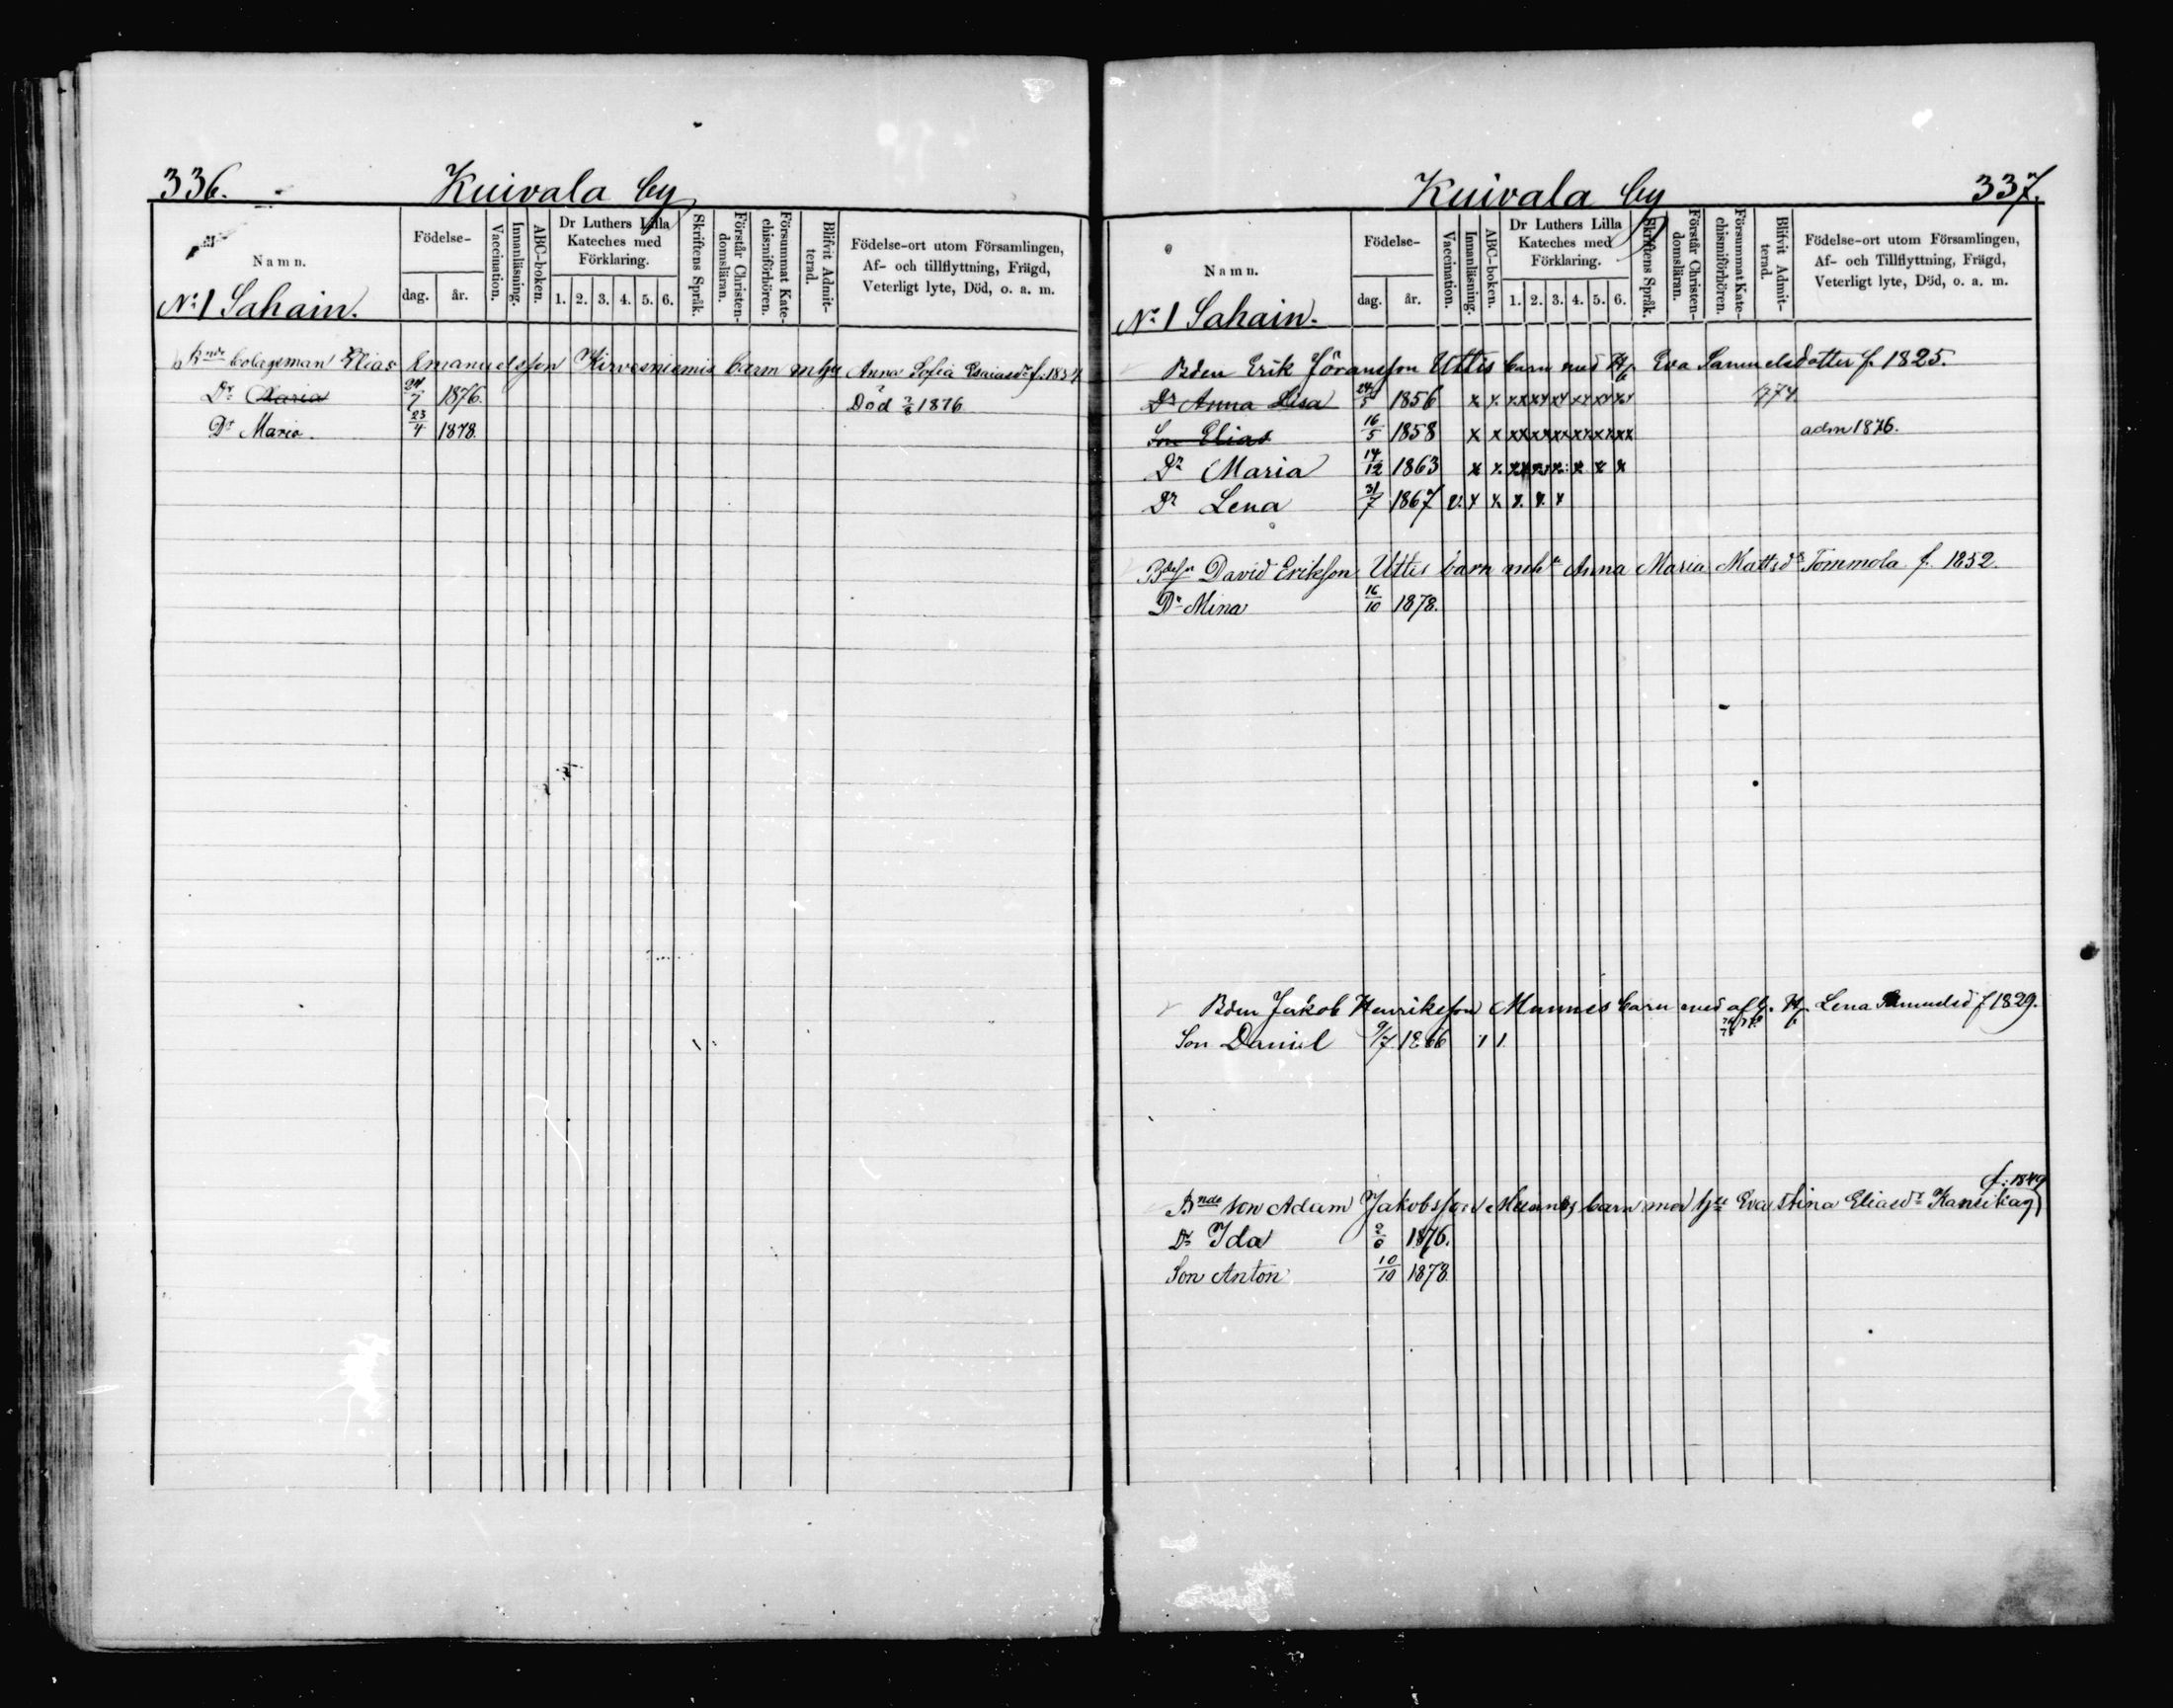 336. Kuivala by
Namn. Födelse- dag. år. Vaccination. Innanläsning. ABC-boken. Dr Luthers Lilla Kateches med Förklaring. 1. 2. 3. 4. 5. 6. Skriftens Språk. Förstår Christendomsläran. Försummat Katechismiförhören. Blifvit Admitterad. Födelse-ort utom Församlingen, Af- och tillflyttning, Frägd, Veterligt lyte, Död, o. a. m.
No 1 Sahain.
Bnde bolagsman Elias Emanuelsson Hirvoniemis barn m hu Anna Sofia Esaiasdr f. 1854
Dr Maria 1876. Död 1876
Dr Maria. 23/4 1878.
Kuivala by 337.
Namn. Födelse- dag. år. Vaccination. Innanläsning. ABC-boken. Dr Luthers Lilla Kateches med Förklaring. 1. 2. 3. 4. 5. 6. Skriftens Språk. Förstår Christendomsläran. Försummat Katechismiförhören. Blifvit Admitterad. Födelse-ort utom Församlingen, Af- och Tillflyttning, Frägd, Veterligt lyte, Död, o. a. m.
No 1 Sahain.
Bden Erik Jöransson Uttis barn med H. Eva Samuelsdotter f. 1825.
Dr Anna Lisa 24/5 1856 x x xx xx xx xx xx xx
Son Elias 16/5 1858 x x xx xx xx xx xx xx adm 1876.
Dr Maria 14/12 1863 x x xx xx x x x x
Dr Lena 31/7 1867 v. x x x x x
David Eriksson Uttis barn mh Anna Maria Mattsdr Tommola f. 1852.
Dr Mina 16/10 1878.
Bden Jakob Henriksson Munnes barn med afl. H. Lena Samuelsd f 1829.
Son Daniel 9/7 1866 1 1
f. 1849
Bnde son Adam Jakobsson Munnes barn med h Eva Stina Eliasdr
Dr Ida 1876.
Son Anton 10/10 1878.